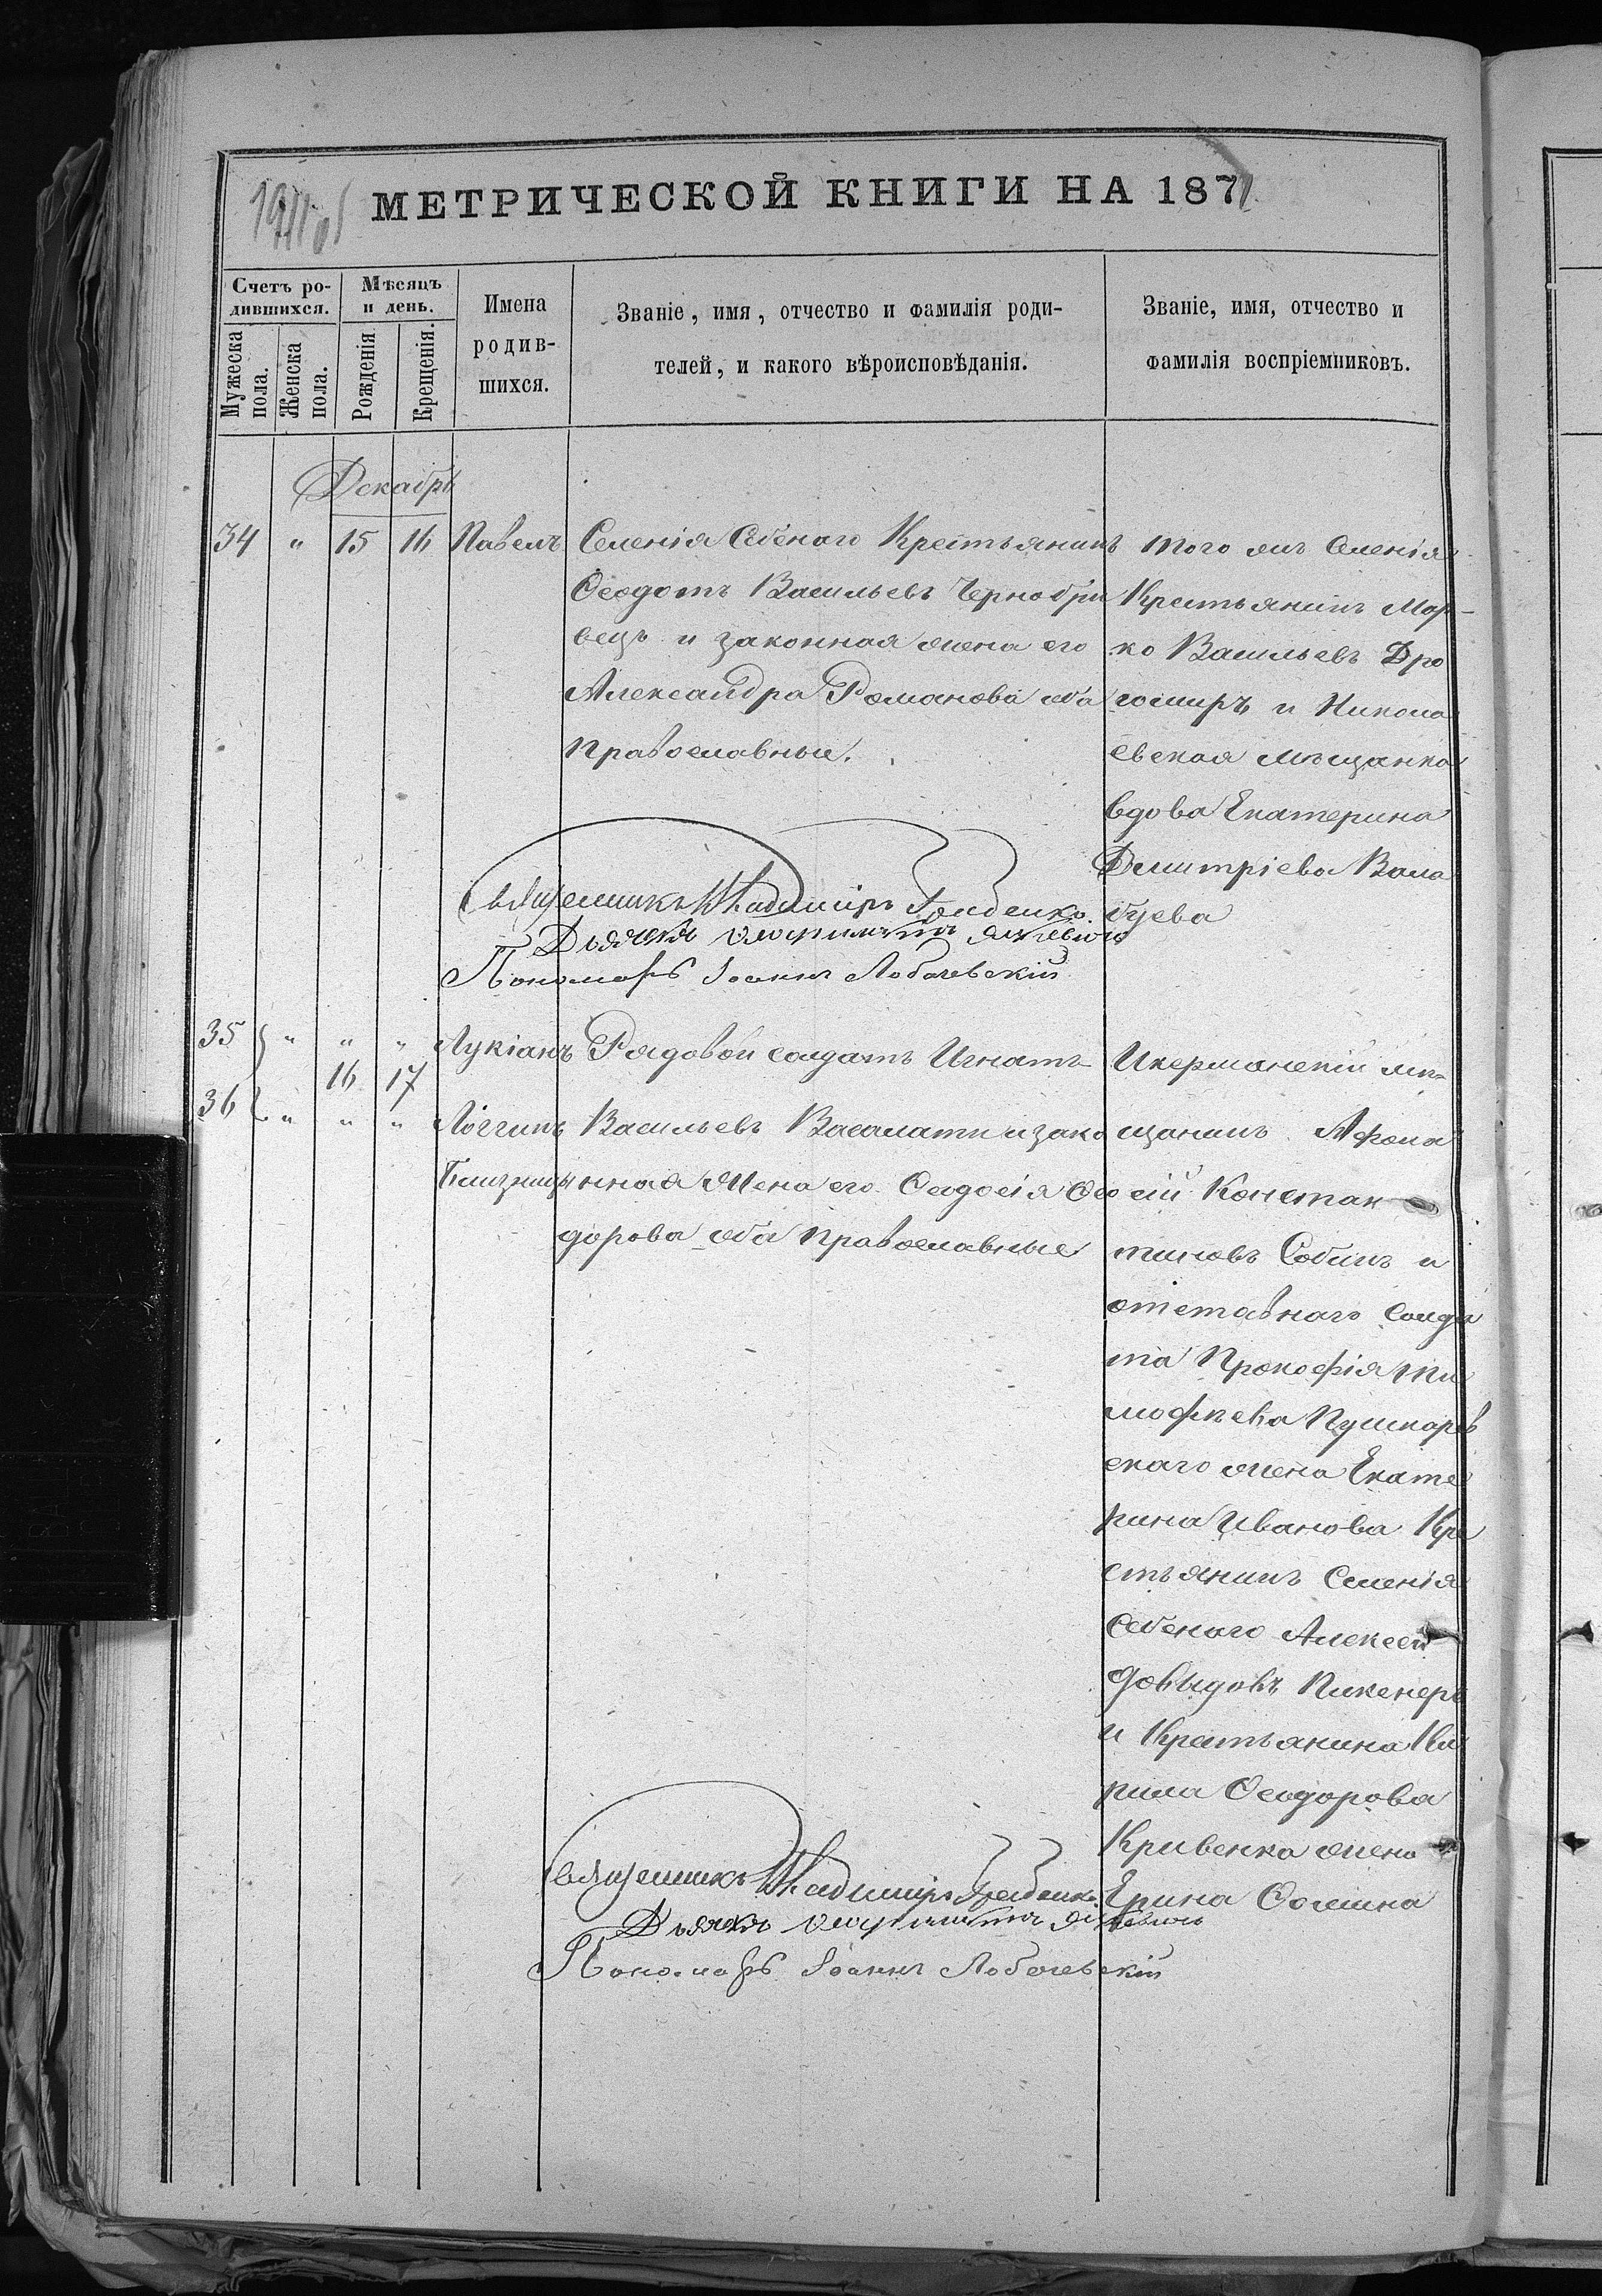 МЕТРИЧЕСКОЙ КНИГИ НА 1871
Счетъ ро-
дившихся.
Мужеска
пола.
Женска
пола.
Мѣсяцъ
и день.
Рожденія
Крещенія.
Имена
родив-
шихся.
Званіе, имя, отчество и фамилія роди-
телей, и какого вѣроисповѣданія.
Званіе, имя, отчество и
фамилія воспріемниковъ.
Декабрь
34 " 15 16 Павелъ
Селенія Себенаго Крестьянинъ
Ѳеодотъ Васильевъ Чернобри
вецъ и законная жена его
Александра Романова оба
православные.
того жъ Селенія
Крестьянинъ Мар-
ко Васильевъ Дро
гомиръ и Никола
евская мѣщанка
вдова Екатерина
Димитріева Вала
буева
Священникъ Владиміръ
Дьячекъ
Пономарь Іоаннъ Лобачевскій
35 " " " Лукіанъ
16 17
36 " " " Логгинъ
близнецы
Рядовой солдатъ Игнатъ
Васильевъ Васалати и зако
нная жена его Ѳеодосія Ѳео
дорова оба православные
Икерманскій мѣ-
щанинъ Афона
сій Констан
тиновъ Собинъ и
отставнаго солда
та Прокофія Ти
мофѣева Пушкарев
скаго жена Екате
рина Иванова Кре
стьянинъ Селенія
Себенаго Алексей
Довыдовъ Пикенеръ
и Крестьянина Ки
рила Ѳеодорова
Кривенка жена
Ерина Ѳомина
Священникъ Владиміръ
Дьячекъ
Пономарь Іоаннъ Лобачевскій